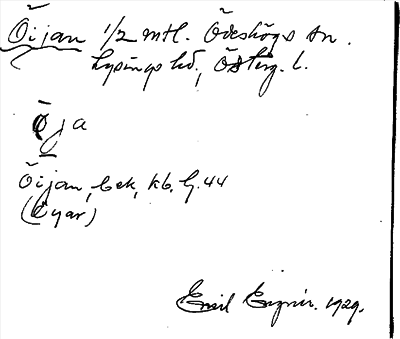 Öijan 1/2 mtl. Ödeshögs sn.
Lysings hd, Österg. l.
Öja
Öijan, bek, kb. G. 44
(Öyar)
Emil 1929.